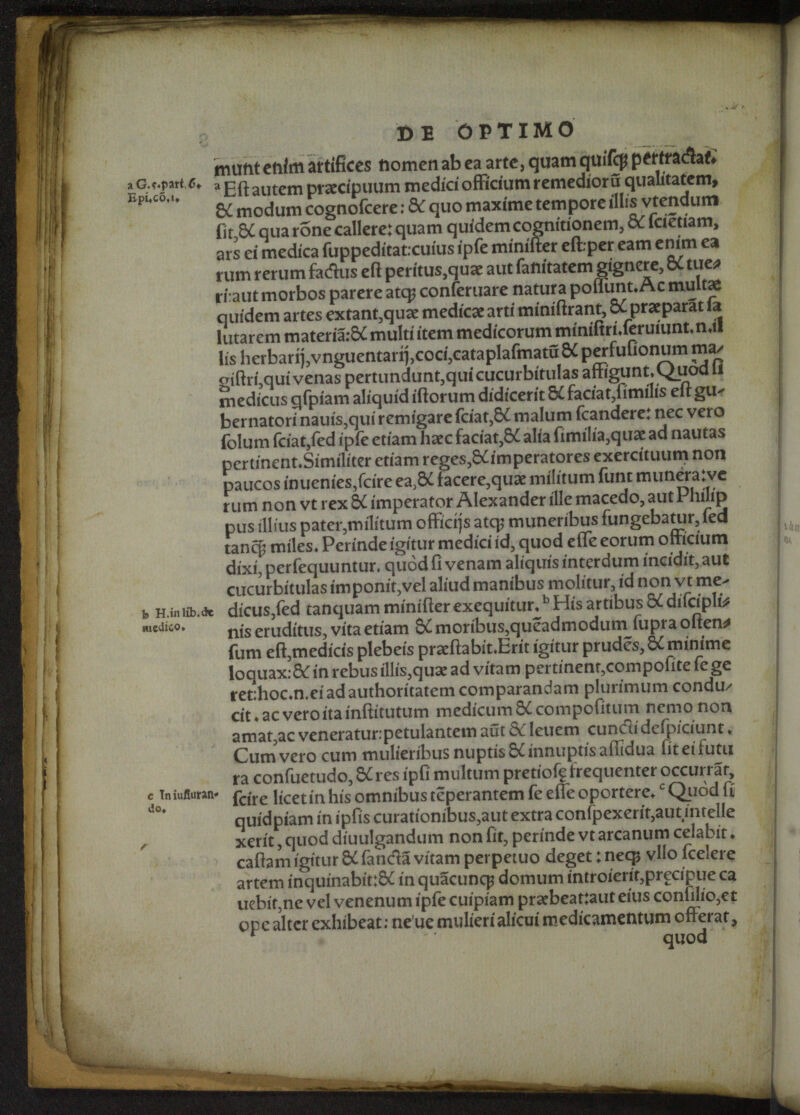 DE OPTIMO
munt ením artifices nomen ab ea arte, quam quiſcꝫ pertractat.
a G. c.part.6.
Epi.cō.1.
ᵃ Eſt autem præcipuum medici officium remediorū qualitatem,
& modum cognoſcere: & quo maxime tempore illis vtendum
ſit,& qua rōne callere: quam quidem cognitionem, & ſciētiam,
ars ei medica ſuppeditat:cuius ipſe miniſter eſt:per eam enim ea
rum rerum factus eſt peritus,quæ aut ſanitatem gignere, & tue⸗
ri:aut morbos parere atqꝫ conſeruare natura poſſunt.Ac multæ
quidem artes extant,quæ medicæ arti miniſtrant, & præparāt ſa
lutarem materiā:& multi item medicorum miniſtri.ſeruiunt.n.il
lis herbarij,vnguentarij,coci,cataplaſmatū & perfuſionum ma⸗
giſtri,qui venas pertundunt,qui cucurbitulas affigunt.Quod ſi
medicus qſpiam aliquid iſtorum didicerit & faciat,ſimilis eſt gu⸗
bernatori nauis,qui remigare ſciat,& malum ſcandere: nec vero
ſolum ſciat,ſed ipſe etiam hæc faciat,& alia ſimilia,quæ ad nautas
pertinent.Similiter etiam reges,& imperatores exercituum non
paucos inuenies,ſcire ea,& facere,quæ militum ſunt munera:ve
rum non vt rex & imperator Alexander ille macedo, aut Philip
pus illius pater,militum officijs atqꝫ muneribus fungebatur, ſed
tanqꝫ miles. Perinde igitur medici id, quod eſſe eorum officium
dixi, perſequuntur. quòd ſi venam aliquis interdum incidit, aut
cucurbitulas imponit,vel aliud manibus molitur, id non vt me⸗
b H.in lib.de
medico.
dicus,ſed tanquam miniſter exequitur. ᵇ His artibus & diſcipli⸗
nis eruditus, vita etiam & moribus,quēadmodum ſupra oſten⸗
ſum eſt,medicis plebeis præſtabit.Erit igitur prudēs, & minime
loquax:& in rebus illis,quæ ad vitam pertinent,compoſite ſe ge
ret:hoc.n.ei ad authoritatem comparandam plurimum condu⸗
cit. ac vero ita inſtitutum medicum & compoſitum nemo non
amat,ac veneratur:petulantem aūt & leuem cuncti deſpiciunt.
Cum vero cum mulieribus nuptis & innuptis aſſidua ſit ei futu
ra conſuetudo, & res ipſi multum pretioſę frequenter occurrāt,
c In iuſiuran⸗
do.
ſcire licet in his omnibus tēperantem ſe eſſe oportere. ᶜ Quòd ſi
quidpiam in ipſis curationibus,aut extra conſpexerit,aut intelle
xerit, quod diuulgandum non ſit, perinde vt arcanum celabit.
caſtam igitur & ſanctā vitam perpetuo deget: neqꝫ vllo ſcelere
artem inquinabit:& in quācunqꝫ domum introierit,pręcipue ca
uebit,ne vel venenum ipſe cuipiam præbeat:aut eius conſilio,et
ope alter exhibeat: neue mulieri alicui medicamentum offerat,
quod